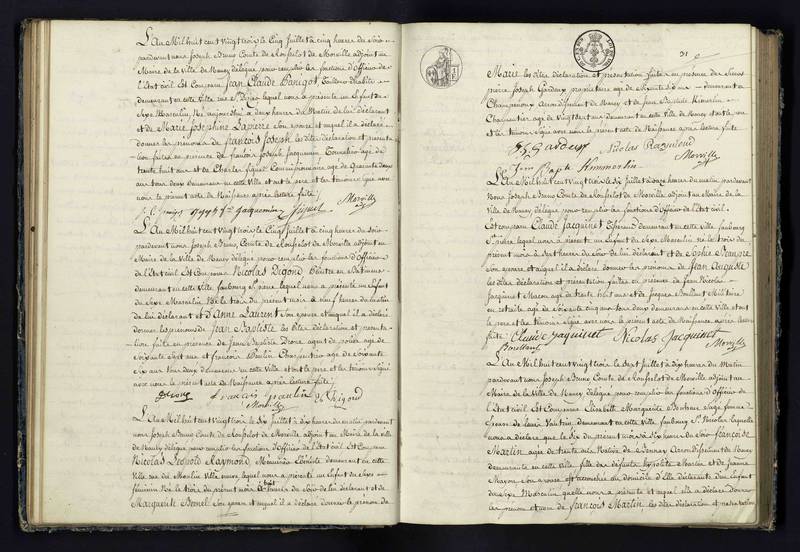 L'An Mil huit cent Vingt trois le Cinq Juillet à cinq heures du Soir
pardevant nous Joseph Bruno Comte de Rouselot de Morville adjoint au
Maire de la Ville de Nancy délégué pour remplir les fonctions d'Officier de
l'Etat civil Est Comparu Jean Claude Banigot
demeurant en cette ville lequel nous a présenté un Enfant du
Sexe Masculin, Né aujourd'hui à deux heures du Matin de lui déclarant
et de Marie Josephine Lapierre Son épouse et auquel il a déclaré
donner les prénoms de François Joseph, les dites déclaration et présenta
tion faites en présence de françois Joseph Jacquemin Tonnelier âgé de
trente huit ans et de Charles Age de Quarante deux
ans tous deux demeurans en cette ville et ont le pere et les témoins signé avec
nous le présent acte de Naissance après lecture faite
Jacquemin Morville
L'An Mil huit cent Vingt trois le Cinq Juillet à cinq heures du Soir
pardevant nous Joseph Bruno Comte de Rouselot de Morville adjoint au
Maire de la Ville de Nancy délégué pour remplir les fonctions d'Officier
de l'Etat civil Est Comparu Nicolas Digond Peintre en Batimens
demeurant en cette ville faubourg St pierre lequel nous a présenté un Enfant
du Sexe Masculin Né le trois du présent mois à neuf heures du matin
de lui déclarant et d'Anne Laurent Son épouse et auquel il a déclaré
donner les prénoms de Jean Baptiste les dites déclaration et présenta
tion faites en présence de Jean Baptiste agent de police âgé de
Soixante Sept ans et françois Poulin âgé de Soixante
Six ans tous deux demeurans en cette Ville et ont le pere et les témoins signé
avec nous le présent acte de Naissance après lecture faite
francois poulin Digond
Morville
L'An Mil huit cent Vingt trois le Six Juillet à dix heures du matin pardevant
nous Joseph Bruno Comte de Rouselot de Morville adjoint au Maire de la ville
de Nancy délégué pour remplir les fonctions d'Officier de l'Etat civil Est Comparu
Nicolas Léopold Raymond Menuisier Ebéniste demeurant en cette
Ville rue du Moulin lequel nous a présenté un Enfant du Sexe
féminin Né le trois du présent mois à huit heures du Soir de lui déclarant et de
Marguerite Bemel Son épouse et auquel il a déclaré donner le prénom de
31
Marie les dites déclaration et présentation faites en présence des Sieurs
pierre Joseph Gardeux propriétaire âgé de Soixante ans demeurant à
Champenoux Arrondissement de Nancy et Jean Baptiste Himmerlin
Charpentier âgé de Vingt Sept ans demeurant en cette ville de Nancy et ont le pere
et les témoins signé avec nous le présent acte de Naissance après lecture faite
Nicolas Raymond
Jean Bapt Himmerlin Morville
L'An Mil huit cent Vingt trois le Six Juillet à onze heures du matin pardevant
Nous Joseph Bruno Comte de Rouselot de Morville adjoint au Maire de la
Ville de Nancy délégué pour remplir les fonctions d'Officier de l'Etat civil
Est comparu Claude Jacquinet demeurant en cette ville, faubourg
St pierre lequel nous a présenté un Enfant du Sexe Masculin né le trois du
présent mois à Sept heures du Soir de lui déclarant et de Sophie Beaupré
Son épouse et auquel il a déclaré donner les prénoms de Jean Auguste
les dites déclaration et présentation faites en présence de Jean Nicolas
Jacquinet Maçon âgé de trente huit ans et de Jacques Militaire
en retraite âgé de Soixante cinq ans tous deux demeurans en cette Ville et ont
le pere et les témoins signé avec nous le présent acte de Naissance après lecture
faite Claude Jaquinet Nicolas Jacquinet
Morville
L'An Mil huit cent Vingt trois le Sept Juillet à dix heures du Matin
pardevant nous Joseph Bruno Comte de Rouselot de Morville adjoint au
Maire de la Ville de Nancy délégué pour remplir les fonctions d'Officier de
l'Etat civil Est Comparue Elisabeth Marguerite Sage femme
épouse de Louis demeurant en cette Ville faubourg St Nicolas laquelle
nous a déclaré que le Six du présent mois à Six heures du Soir françoise
Marlin âgée de trente ans Native de Arrondissement de Nancy
demeurante en cette Ville fille des défunts hypolite Marlin et de Jeanne
Mayon Son épouse est accouchée au domicile d'Elle déclarante d'un Enfant
du Sexe Masculin quelle nous a présenté et auquel elle a déclaré donner
les prénom et nom de François Marlin, les dites déclaration et présentation